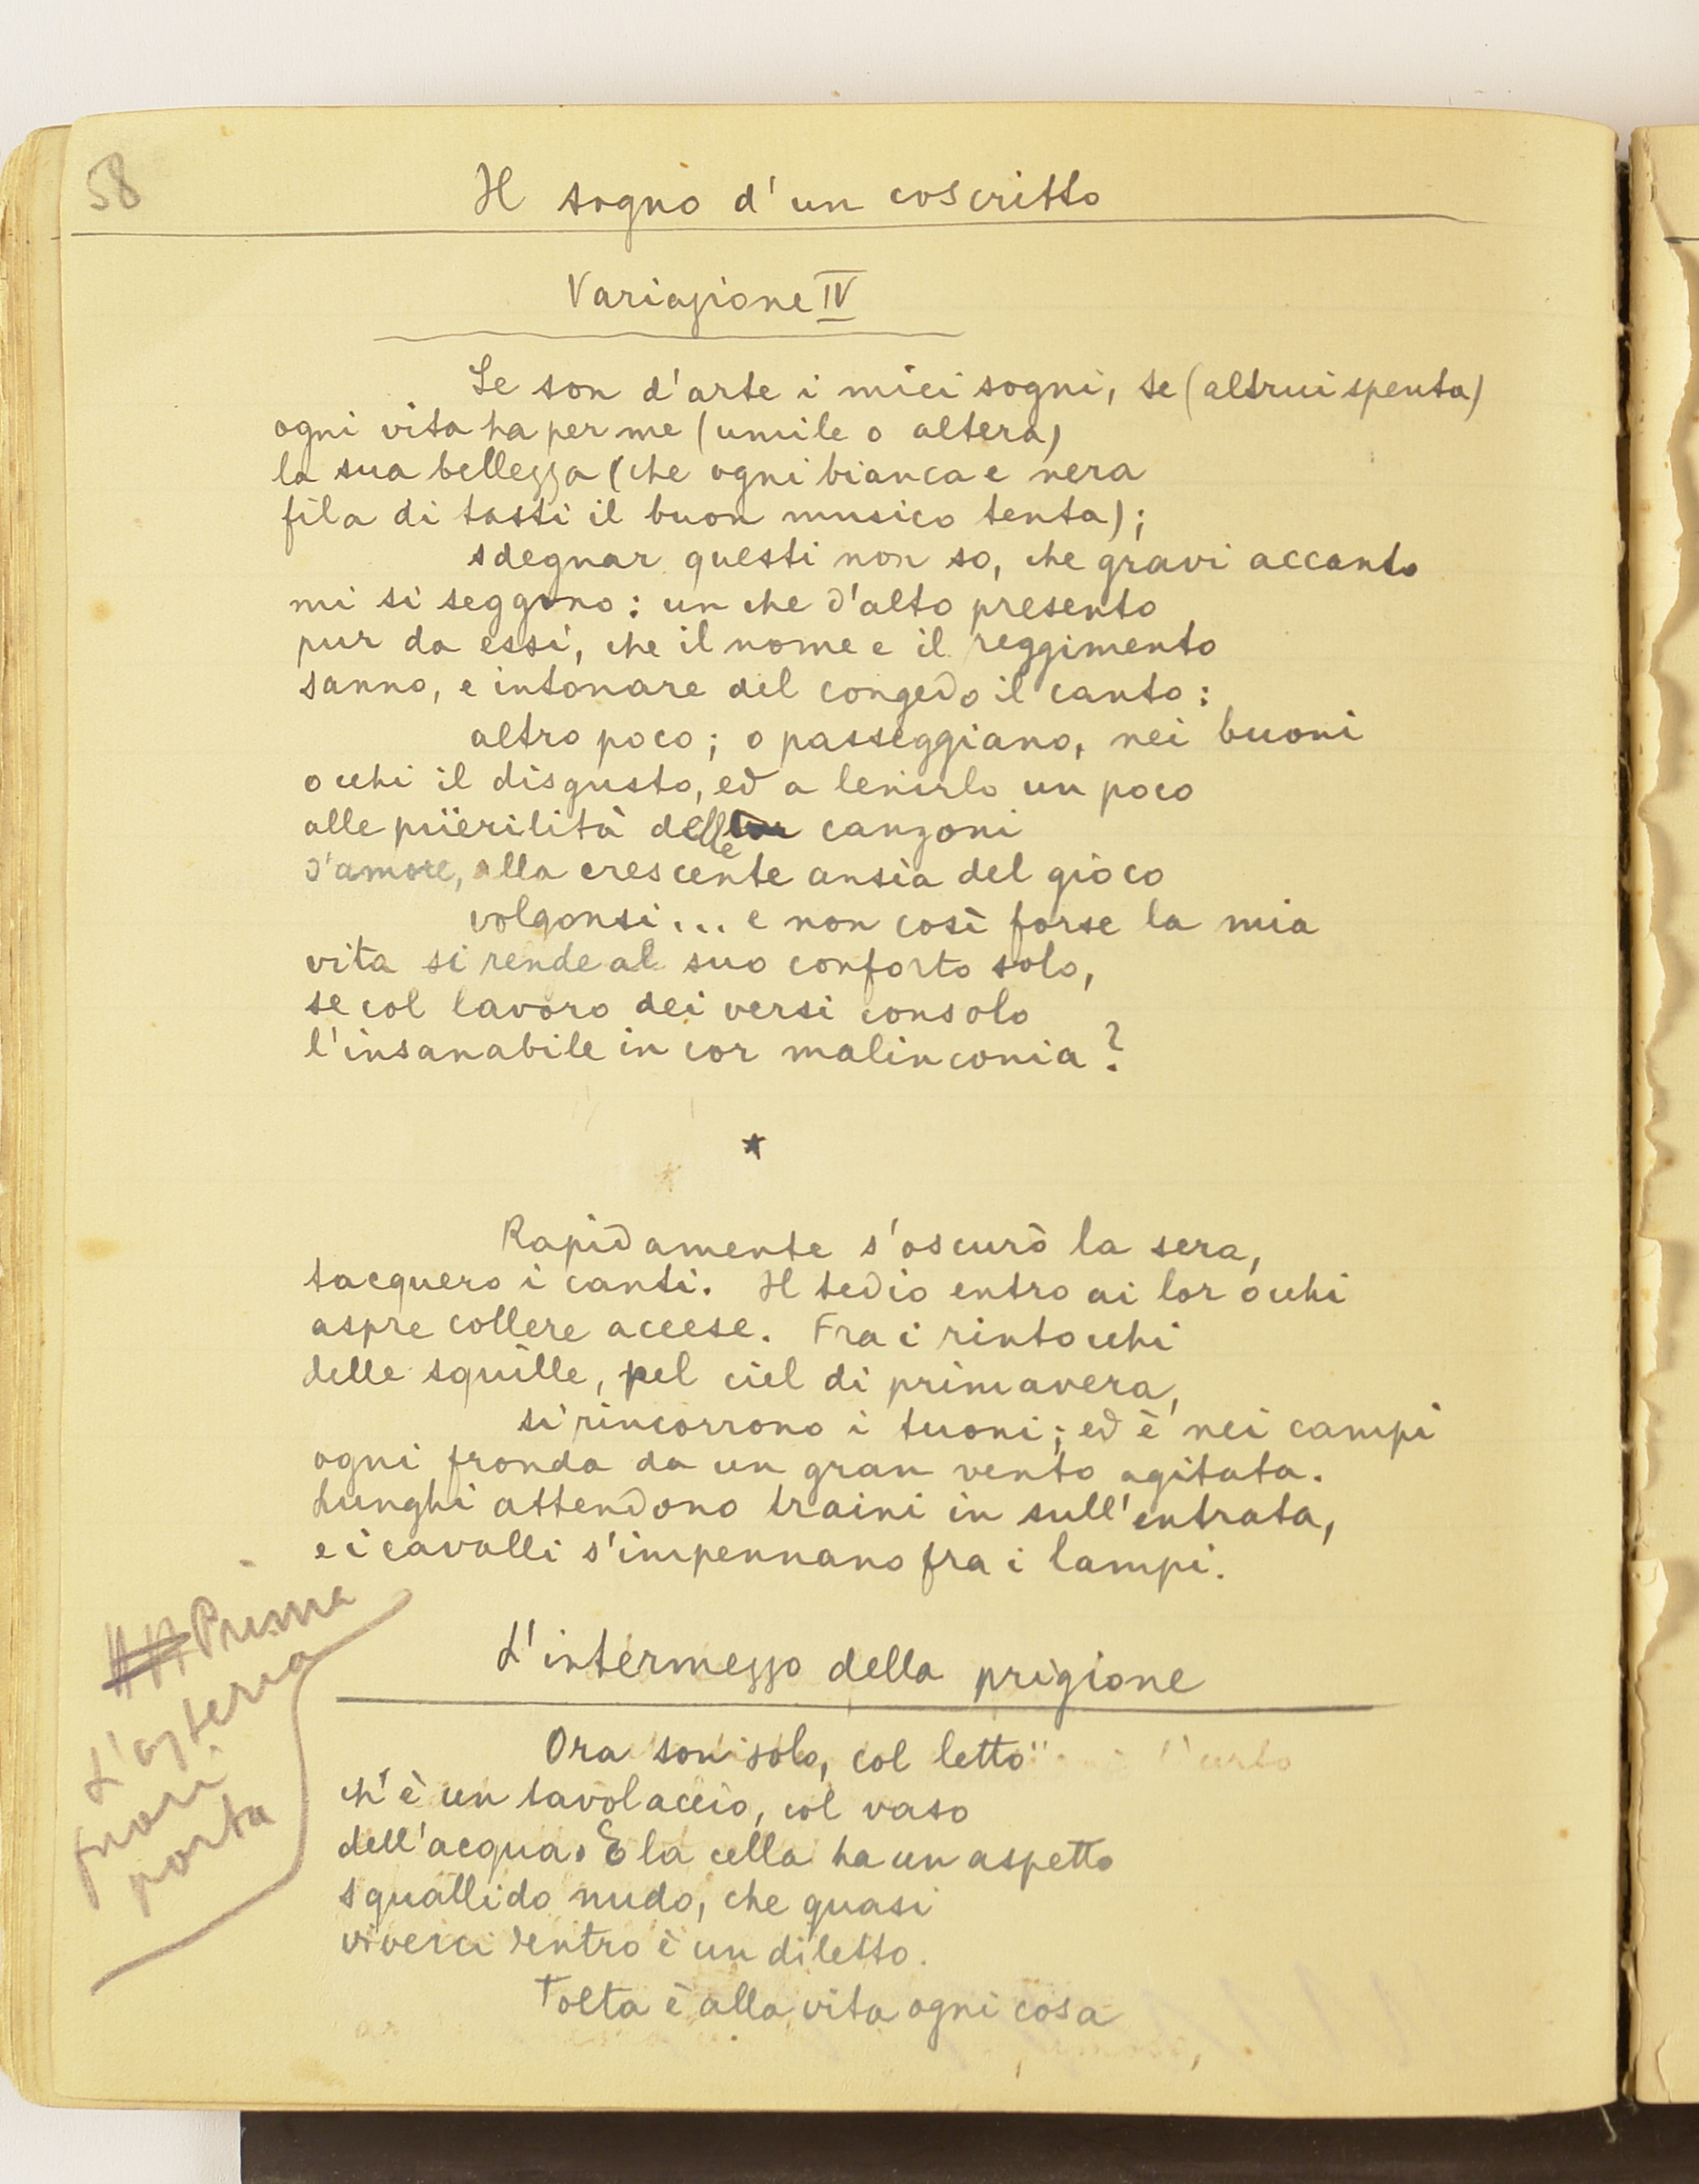 58
Il sogno d'un coscritto
Variazione IV
Se son d'arte i miei sogni, se (altrui spenta)
ogni vita ha per me (umile o altera)
la sua bellezza (che ogni bianca e nera
fila di tasti il buon musico tenta);
sdegnar questi non so, che gravi accanto
mi si seggono: un che d'alto presento
pur da essi, che il nome e il reggimento
sanno, e intonare del congedo il canto:
altro poco; o passeggiano, nei buoni
occhi il disgusto, ed a lenirlo un poco
alle püerilità delle canzoni
d'amore, alla crescente ansia del gioco
volgonsi... e non così forse la mia
vita si rende al suo conforto solo,
se col lavoro dei versi consolo
l'insanabile in cor malinconia?
*
Rapidamente s'oscurò la sera,
tacquero i canti. Il tedio entro ai lor occhi
aspre collere accese. Fra i rintocchi
delle squille, pel ciel di primavera,
si rincorrono i tuoni; ed è nei campi
ogni fronda da un gran vento agitata.
Lunghi attendono traini in sull'entrata,
e i cavalli s'impennano fra i lampi.
Prima
L'osteria
fuori
porta
L'intermezzo della prigione
Ora son solo, col letto
ch'è un tavolaccio, col vaso
dell'acqua. E la cella ha un aspetto
squallido nudo, che quasi
viverci dentro è un diletto.
Tolta è alla vita ogni cosa